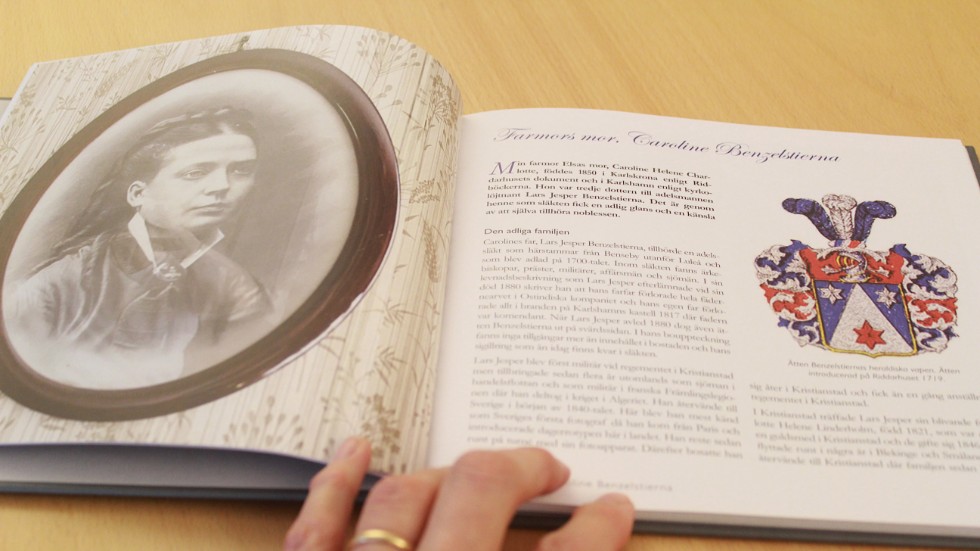 Farmors mor, Caroline Benzelstierna
Min farmor Elsas mor, Caroline Helene Char-
lotte, föddes 1850 i Karlskrona enligt Rid-
darhusets dokument och i Karlshamn enligt kyrko-
böckerna. Hon var tredje dottern till adelsmannen
löjtnant Lars Jesper Benzelstierna. Det är genom
henne som släkten fick en adlig glans och en känsla
av att själva tillhöra noblessen.
Den adliga familjen
Carolines far, Lars Jesper Benzelstierna, tillhörde en adels-
släkt som härstammar från Benseby utanför Luleå och
som blev adlad på 1700-talet. Inom släkten fanns ärke-
biskopar, präster, militärer, affärsmän och sjömän. I sin
levnadsbeskrivning som Lars Jesper efterlämnade vid sin
död 1880 skriver han att hans farfar förlorade hela fäder-
nearvet i Ostindiska kompaniet och hans egen far förlo-
rade allt i branden på Karlshamns kastell 1817 där fadern
var komendant. När Lars Jesper avled 1880 dog även ät-
ten Benzelstierna ut på svärdssidan. I hans bouppteckning
fanns inga tillgångar mer än innehållet i bostaden och hans
sigillring som än idag finns kvar i släkten.
Lars Jesper blev först militär vid regementet i Kristianstad
men tillbringade sedan flera år utomlands som sjöman i
handelsflottan och som militär i franska Främlingslegio-
nen där han deltog i kriget i Algeriet. Han återvände till
Sverige i början av 1840-talet. Här blev han mest känd
som Sveriges första fotograf då han kom från Paris och
introducerade dagerrotypen här i landet. Han reste sedan
runt på turné med sin fotoapparat. Därefter bosatte han
Ätten Benzelstiernas heraldiska vapen. Ätten
introducerad på Riddarhuset 1719.
sig åter i Kristianstad och fick än en gång anställ
regementet i Kristianstad.
I Kristianstad träffade Lars Jesper sin blivande
lotte Helene Linderholm, född 1821, som var
en guldsmed i Kristianstad och de gifte sig 1846
flyttade runt i några år i Blekinge och Småland
återvände till Kristianstad där familjen sedan
Benzelstierna